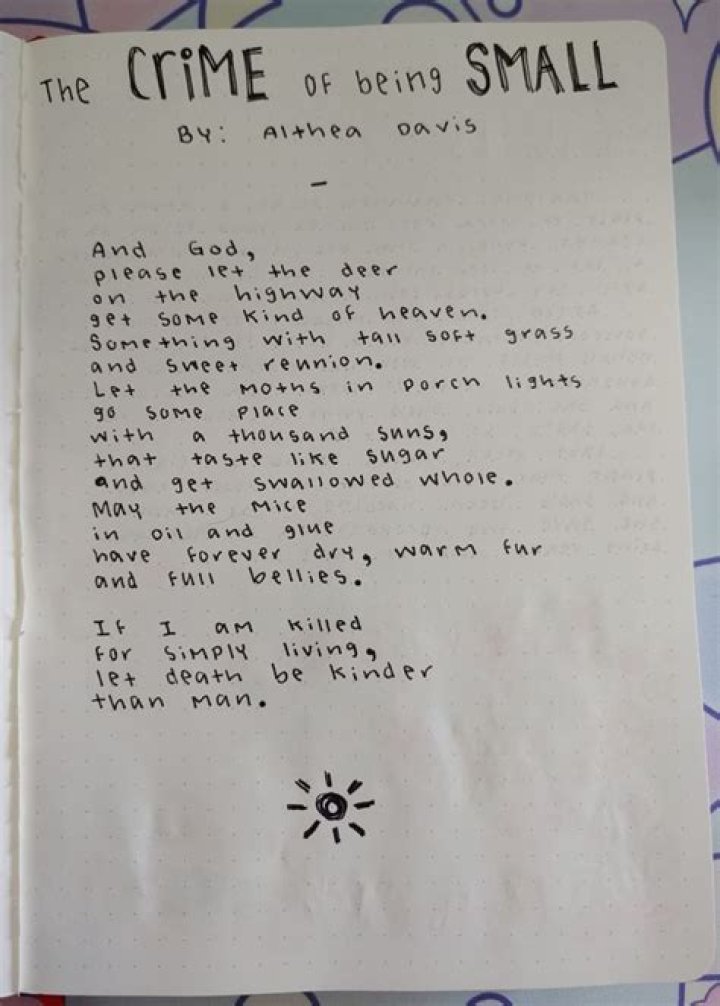 The CRiME OF being SMALL
BY: Althea Davis
–
And God,
please let the deer
on the highway
get some kind of heaven.
Something with tall soft grass
and sweet reunion.
Let the moths in porch lights
go some place
with a thousand suns,
that taste like sugar
and get swallowed whole.
May the mice
in oil and glue
have forever dry, warm fur
and full bellies.
If I am killed
for simply living,
let death be kinder
than man.